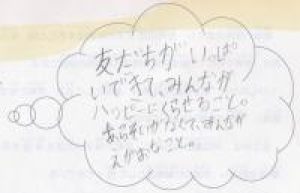 友だちが いっぱ
いできて、みんなが
ハッピーにくらせること。
あらそいがなくて、みんなが
えがおなこと。